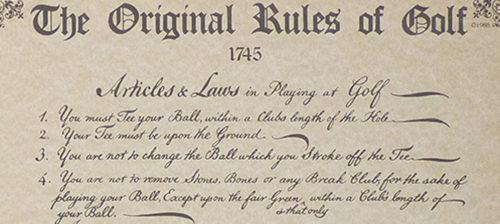 The Original Rules of Golf
1745
Articles & Laws in Playing at Golf
1. You must Tee your Ball, within a Clubs length of the Hole
2. Your Tee must be upon the Ground
3. You are not to change the Ball which you Stroke off the Tee
4. You are not to remove Stones, Bones or any Break Club, for the sake of
playing your Ball, Except upon the fair Green, within a Clubs length of
your Ball. & that only